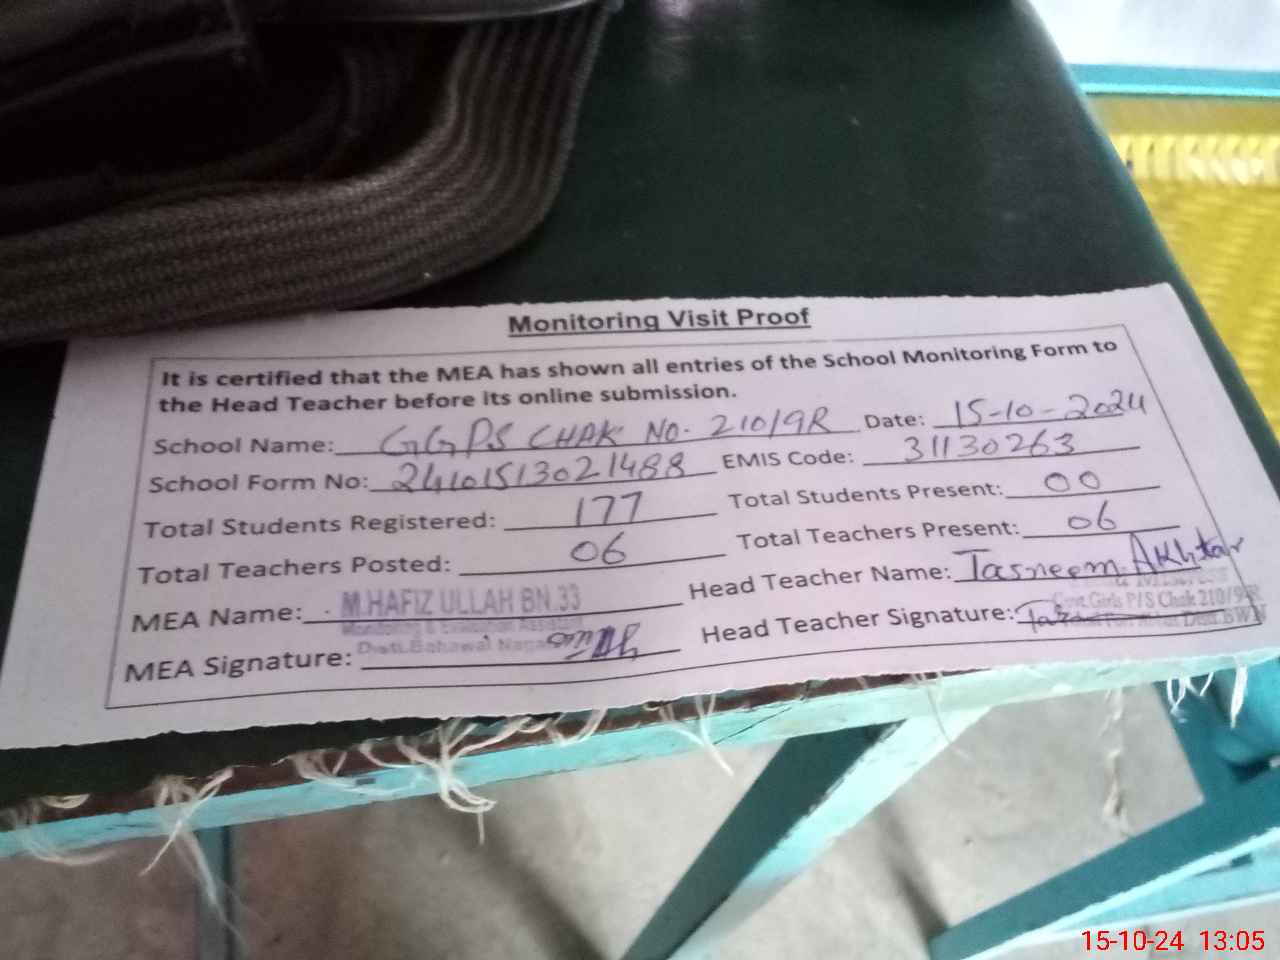 Monitoring Visit Proof
It is certified that the MEA has shown all entries of the School Monitoring Form to
the Head Teacher before its online submission.
School Name: GGPS CHAK NO. 210/9R Date: 15-10-2024
School Form No: 24101513021488 EMIS Code: 31130263
Total Students Registered: 177 Total Students Present: 00
Total Teachers Posted: 06 Total Teachers Present: 06
MEA Name: M.HAFIZ ULLAH BN.33 Head Teacher Name: Tasneem Akhtar
Monitoring & Evaluation Assistant
Govt.Girls P/S Chak 210/9R
MEA Signature: Distt.Bahawal Nagar Head Teacher Signature:
15-10-24 13:05